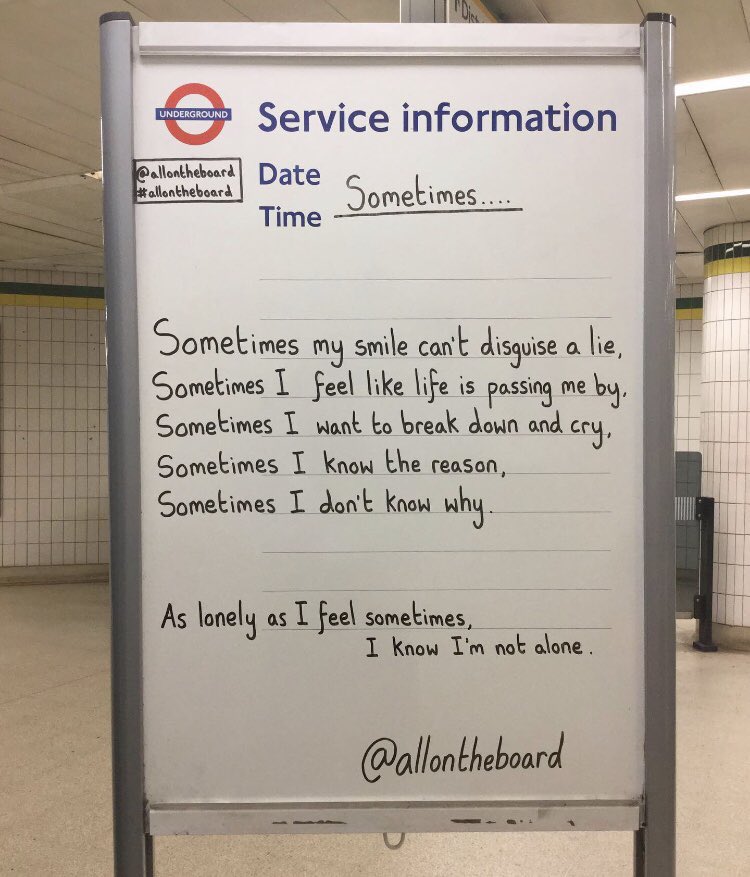 Dist
UNDERGROUND
Service information
@allontheboard
#allontheboard
Date
Time
Sometimes....
Sometimes my smile can't disguise a lie,
Sometimes I feel like life is passing me by,
Sometimes I want to break down and cry,
Sometimes I know the reason,
Sometimes I don't know why.
As lonely as I feel sometimes,
I know I'm not alone.
@allontheboard